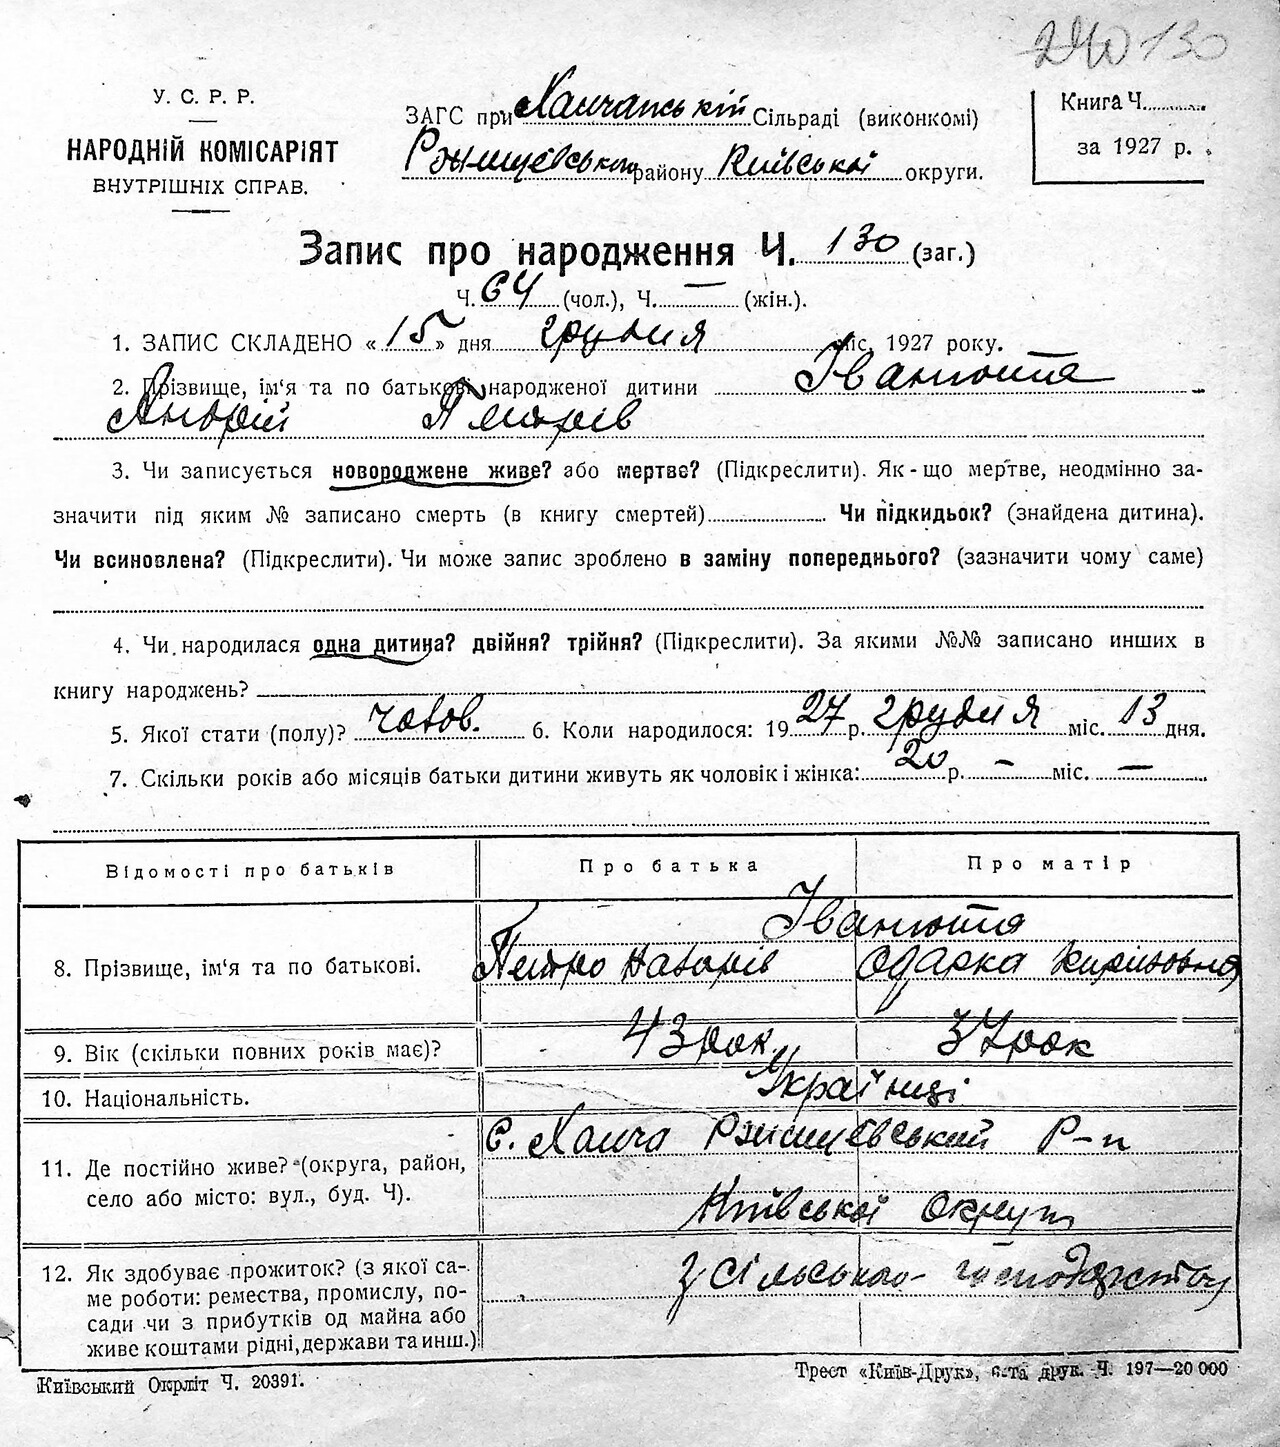 240 130
У. С. Р. Р.
НАРОДНІЙ КОМІСАРІЯТ
ВНУТРІШНІХ СПРАВ.
ЗАГС при Ханчанській Сільраді (виконкомі)
Ржищевського району Київської округи.
Книга Ч.
за 1927 р.
Запис про народження Ч. 130 (заг.)
Ч. 64 (чол.), Ч. — (жін.).
1. ЗАПИС СКЛАДЕНО « 15 » дня грудня міс. 1927 року.
2. Прізвище, ім'я та по батькові народженої дитини Іванюта
Андрій Петрів
3. Чи записується новороджене живе? або мертве? (Підкреслити). Як-що мертве, неодмінно за-
значити під яким № записано смерть (в книгу смертей) Чи підкидьок? (знайдена дитина).
Чи всиновлена? (Підкреслити). Чи може запис зроблено в заміну попереднього? (зазначити чому саме)
4. Чи народилася одна дитина? двійня? трійня? (Підкреслити). За якими №№ записано инших в
книгу народжень?
5. Якої стати (полу)? чолов. 6. Коли народилося: 19 27 р. грудня міс. 13 дня.
7. Скільки років або місяців батьки дитини живуть як чоловік і жінка: 20 р. — міс. —
Відомості про батьків Про батька Про матір
Іванюта
8. Прізвище, ім'я та по батькові. Петро Назарів Одарка Кирилівна
9. Вік (скільки повних років має)? 43 рок. 37 рок
10. Національність. Українці
11. Де постійно живе? (округа, район,
село або місто: вул., буд. Ч).
с. Ханча Ржищевський Р-н
Київської Округи
12. Як здобуває прожиток? (з якої са-
ме роботи: ремества, промислу, по-
сади чи з прибутків од майна або
живе коштами рідні, держави та инш.)
з сільського-господарства
Київський Окрліт Ч. 20391.
Трест «Київ-Друк», 6-та друк. Ч. 197—20 000